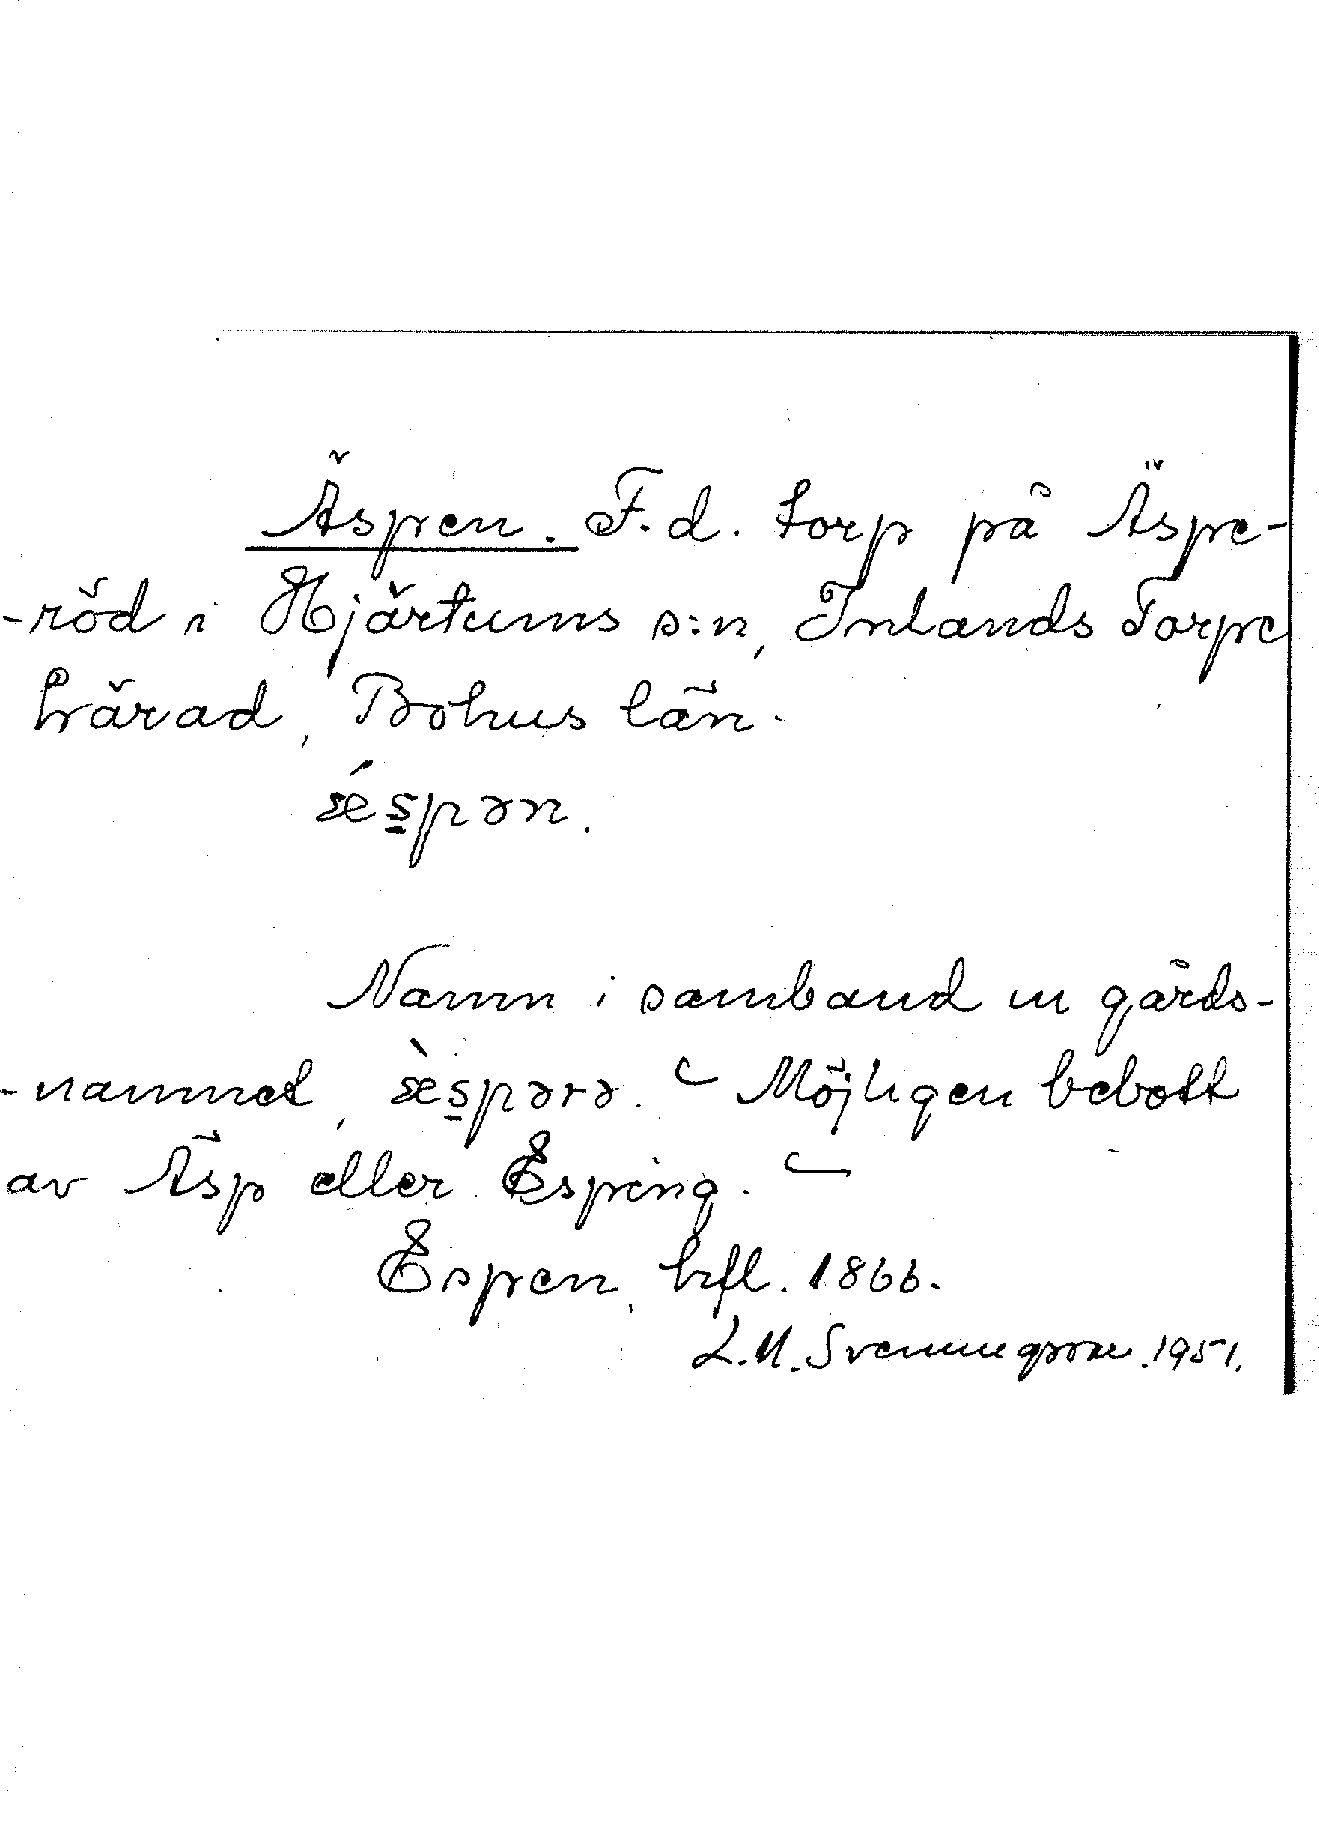 Äspen. F.d. torp på Äspe-
-röd i Hjärtums s:n, Inlands Torpe
härad, Bohus län.
ǽs̱pən.
Namn i samband m gårds-
-namnet, æ̀s̱pərə. – Möjligen bebott
av Äsp eller Esping. –
Espen, hfl. 1866.
L.M. Svenungsson. 1951.